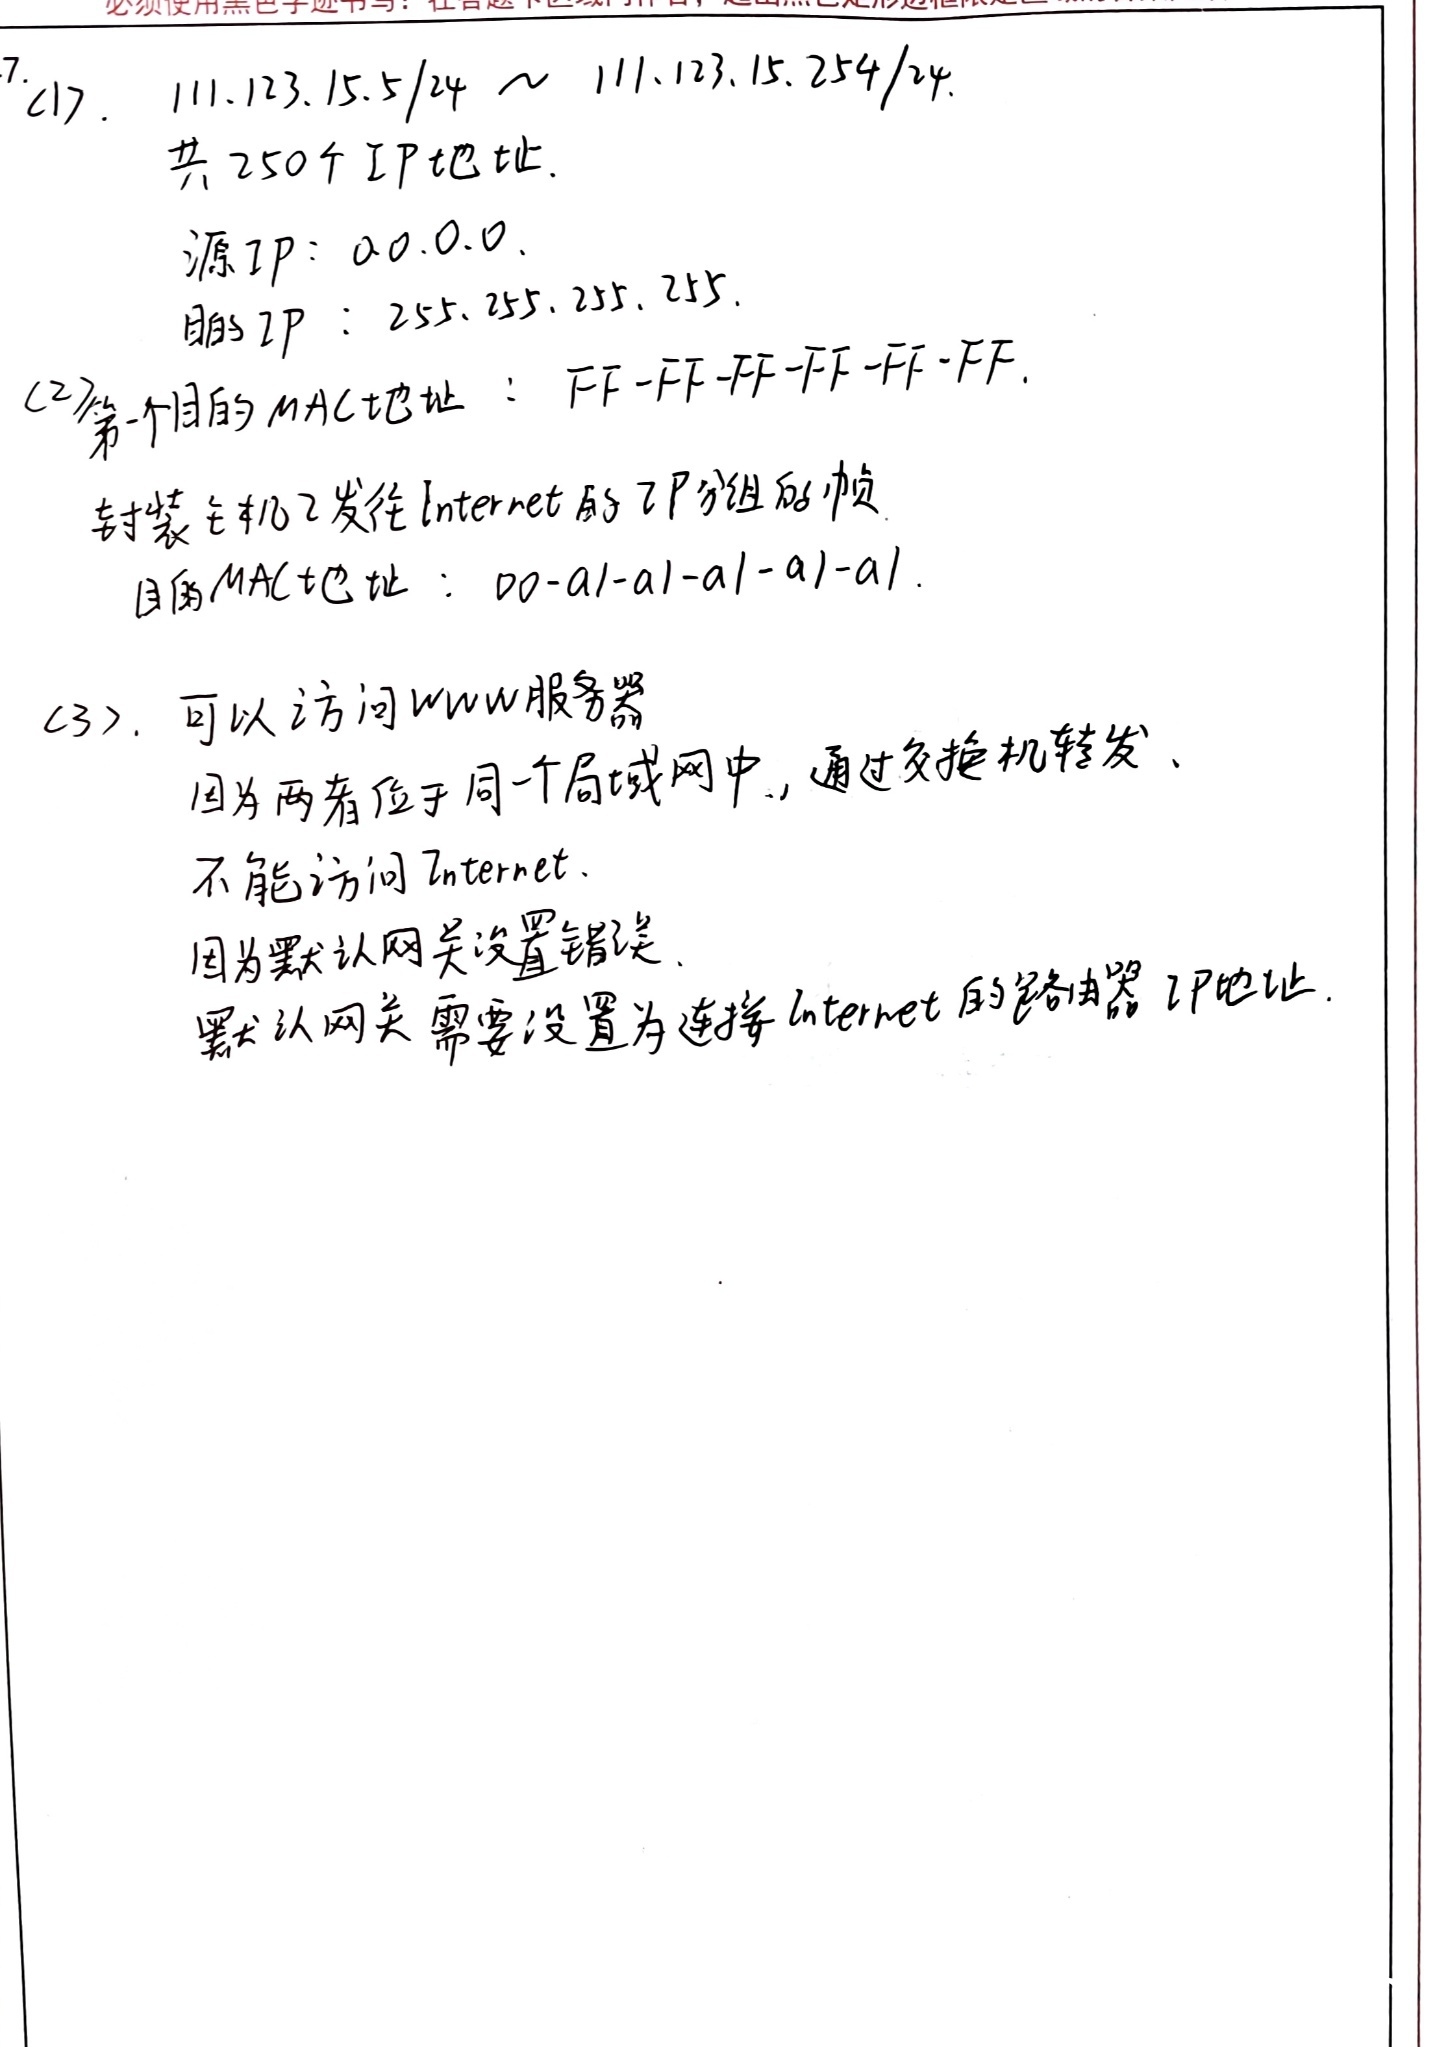 7.
(1). 111.123.15.5/24 ~ 111.123.15.254/24.
共250个IP地址.
源IP: 0.0.0.0.
目的IP: 255.255.255.255.
(2)第一个目的MAC地址: FF-FF-FF-FF-FF-FF.
封装主机2发往Internet的IP分组的帧
目的MAC地址: 00-a1-a1-a1-a1-a1.
(3). 可以访问WWW服务器
因为两者位于同一个局域网中,通过交换机转发、
不能访问Internet.
因为默认网关设置错误.
默认网关需要设置为连接Internet的路由器IP地址.